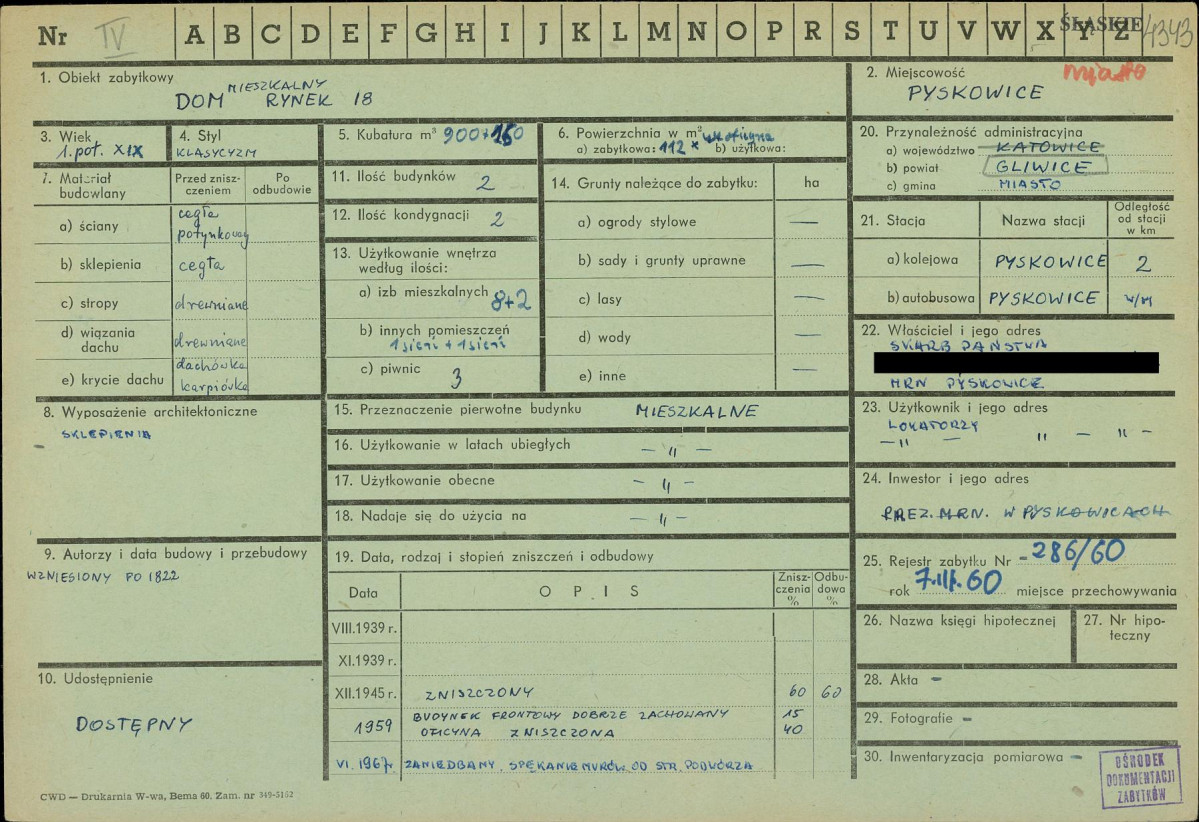 Nr IV A B C D E F G H I J K L M N O P R S T U V W X Y Z ŚLĄSKIE 4343
1. Obiekt zabytkowy
DOM MIESZKALNY RYNEK 18
2. Miejscowość miasto
PYSKOWICE
3. Wiek
1. poł. XIX
4. Styl
KLASYCYZM
5. Kubatura m³ 900 + 160
6. Powierzchnia w m²
a) zabytkowa: 112 b) użytkowa:
7. Materiał budowlany
Przed zniszczeniem
Po odbudowie
a) ściany cegła potynkowany
b) sklepienia cegła
c) stropy drewniane
d) wiązania dachu drewniane
e) krycie dachu dachówka karpiówka
8. Wyposażenie architektoniczne
SKLEPIENIA
9. Autorzy i data budowy i przebudowy
WZNIESIONY PO 1822
10. Udostępnienie
DOSTĘPNY
11. Ilość budynków 2
12. Ilość kondygnacji 2
13. Użytkowanie wnętrza według ilości:
a) izb mieszkalnych 8+2
b) innych pomieszczeń
1 sień + 1 sień
c) piwnic 3
14. Grunty należące do zabytku: ha
a) ogrody stylowe —
b) sady i grunty uprawne —
c) lasy —
d) wody —
e) inne —
15. Przeznaczenie pierwotne budynku MIESZKALNE
16. Użytkowanie w latach ubiegłych — " —
17. Użytkowanie obecne — " —
18. Nadaje się do użycia na — " —
19. Data, rodzaj i stopień zniszczeń i odbudowy
Data OPIS Zniszczenia % Odbudowa %
VIII.1939 r.
XI.1939 r.
XII.1945 r. ZNISZCZONY 60 60
1959 BUDYNEK FRONTOWY DOBRZE ZACHOWANY 15
OFICYNA ZNISZCZONA 40
VI. 1967r. ZANIEDBANY. SPĘKANIE MURÓW OD STR. PODWÓRZA
20. Przynależność administracyjna
a) województwo KATOWICE
b) powiat GLIWICE
c) gmina MIASTO
21. Stacja Nazwa stacji Odległość od stacji w km
a) kolejowa PYSKOWICE 2
b) autobusowa PYSKOWICE w/m
22. Właściciel i jego adres
SKARB PAŃSTWA
MRN PYSKOWICE
23. Użytkownik i jego adres
LOKATORZY
— " — " — " —
24. Inwestor i jego adres
PREZ. MRN. W PYSKOWICACH
25. Rejestr zabytku Nr - 286/60
rok 7.III.60 miejsce przechowywania
26. Nazwa księgi hipotecznej
27. Nr hipoteczny
28. Akta -
29. Fotografie -
30. Inwentaryzacja pomiarowa -
OŚRODEK
DOKUMENTACJI
ZABYTKÓW
CWD — Drukarnia W-wa, Bema 60. Zam. nr 349-5162